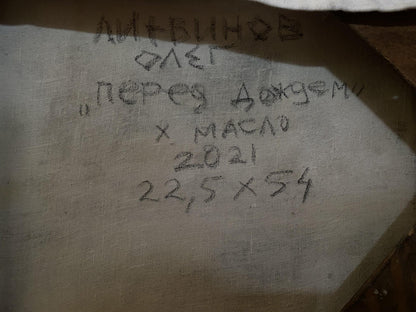 ЛИТВИНОВ
ОЛЕГ
„перед дождем"
х масло
2021
22,5 х 54